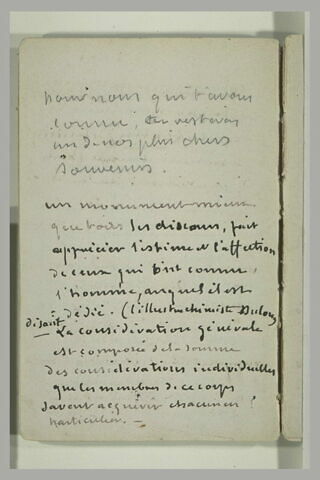 pour nous qui t'avons
connu, tu resteras
un de nos plus chers
Souvenirs.
un monument mieux
que tous les discours, fait
apprécier l'estime et l'affection
de ceux qui ont connu
l'homme, auquel il est
dédié. (l'illustre chimiste Dulong
disait
La considération générale
est composée de la somme
des considérations individuelles
que les membres de ce corps
savent acquérir chacun en
particulier. —